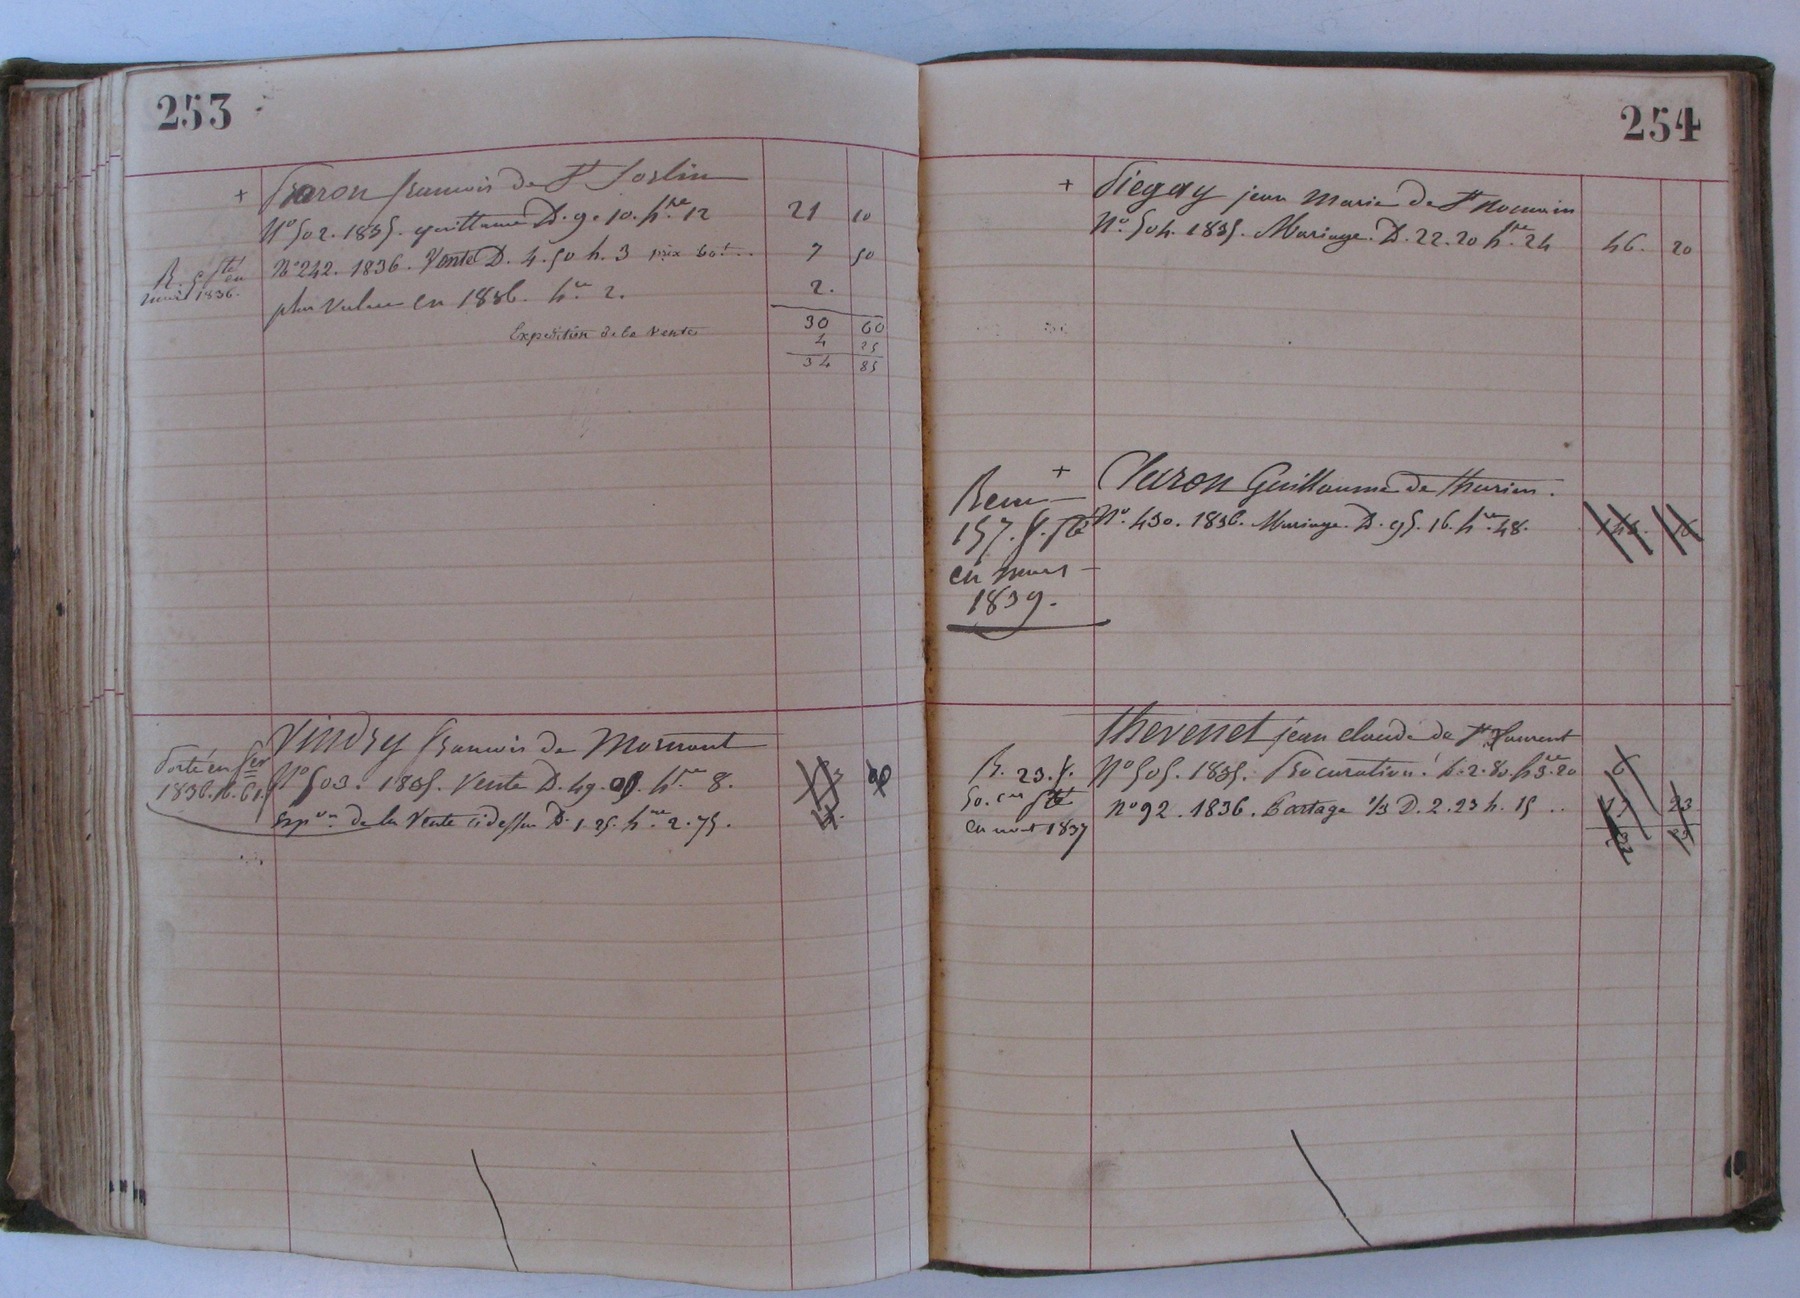 253
+ françois de St
No 502. 1835. quittance D. 9. 10. hre 12 21 10
No 242. 1836. Vente D. 4. 50 h. 3 prix 7 50
R. 5 f
1836.
plus value en 1836. hre 2. 2.
30 60
Expedition de la vente 4 25
34 85
Vindry françois de Mornant
Porté en fer
1836.
No 503. 1835. Vente D. 49. hre 8.
Expon de la Vente ci dessus D. 1. 25. hre 2. 75.
254
+ Piegay jean Marie de St Romain
No 504. 1835. Mariage. D. 22. 20 hre 24 46. 20
+ Guillaume de thurins.
157. f. Ste
en mars
1839.
No. 430. 1836. Mariage. D. 95. 16. hre 48.
thevenet jean claude de St Laurent
R. 23. f.
50. cen Ste
en 1837
No 505. 1835. Procuration. D. 2. 80. h 3. 20 6
no 92. 1836. Partage 1/3 D. 2. 23 h. 15 .. 17 23